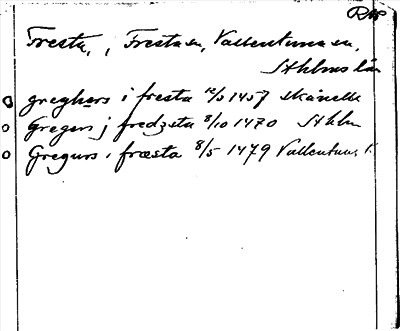 Fresta, , Fresta sn, Vallentuna sn,
Sthlms län
greghers i fresta 12/3 1457 Skånella
Gregers j fredzsta 8/10 1470 Sthlm
Gregurs i fræsta 8/5 1479 Vallentuna k.